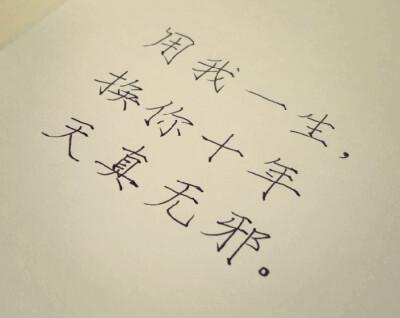 用我一生，
换你十年
天真无邪。